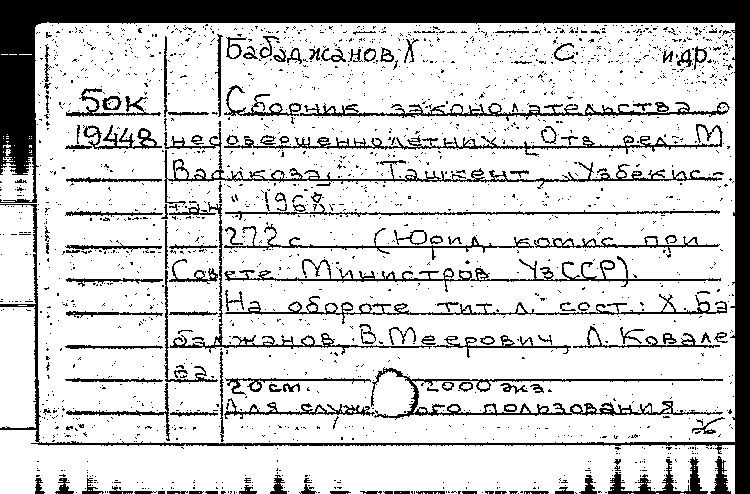 Бабаджанов, Х С и др.
50к Сборник законодательства о
19448 несовершеннолетних. Отв. ред. М
Васикова. Ташкент, "Узбекис-
тан", 1968.
272 с. (Юрид. комис при
Совете Министров УзССР).
На обороте тит. л. сост.: Х. Ба-
баджанов, В. Меерович, Л. Ковале-
ва
20 см. 2000 экз.
Для служе ого пользования